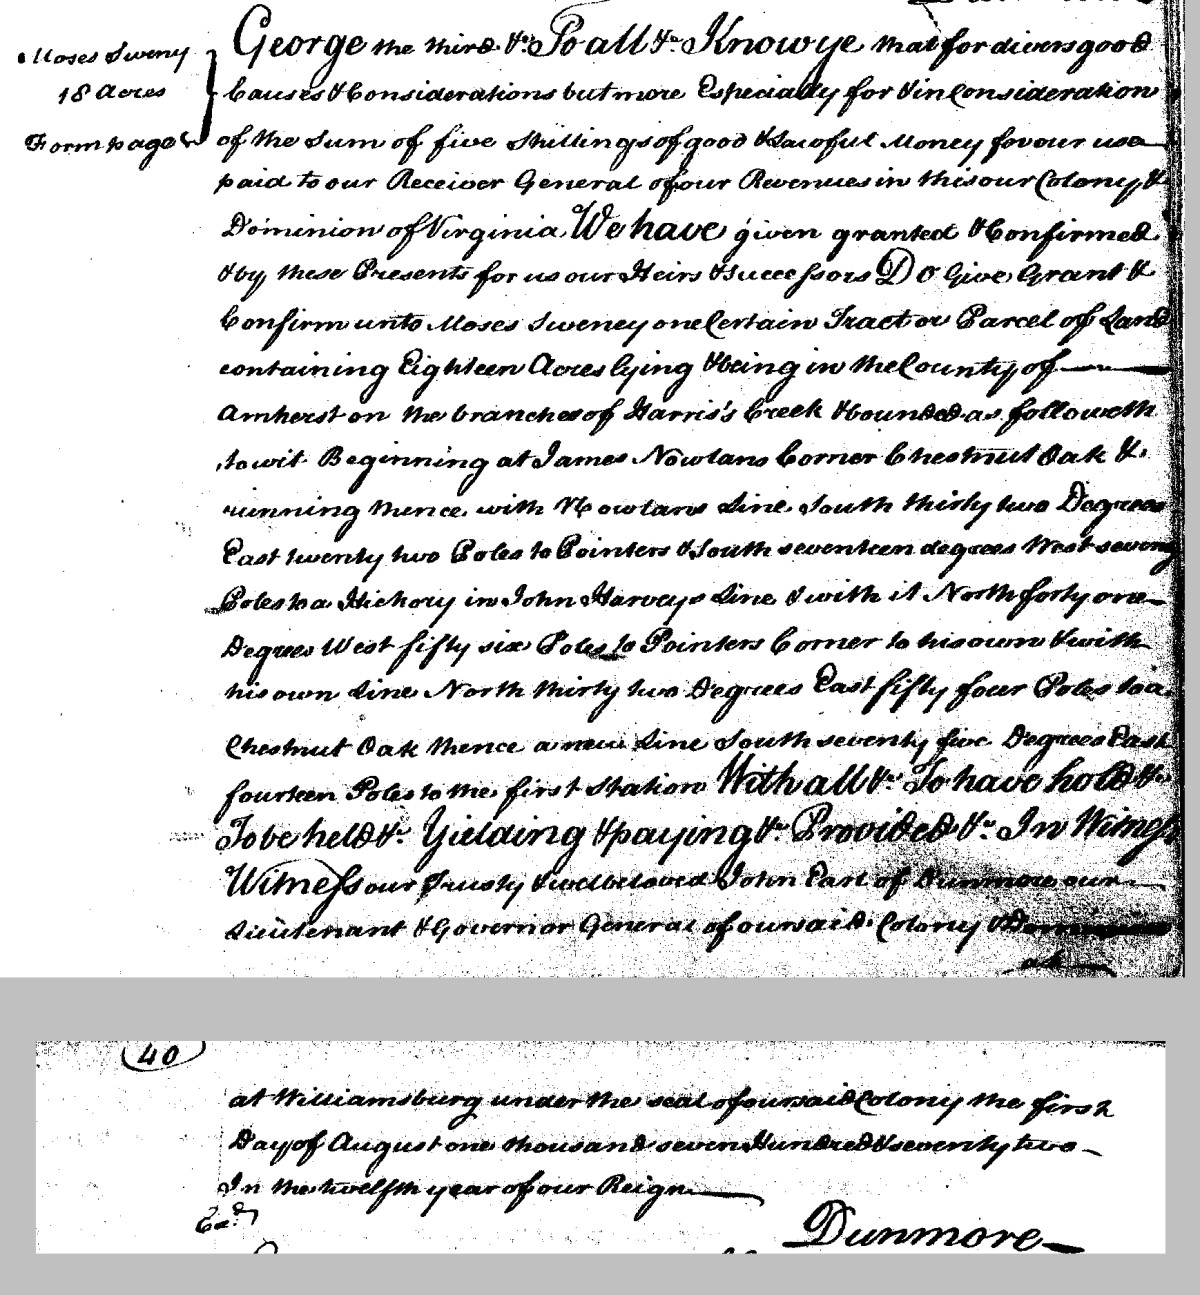 Moses Sweny
18 Acres
Form page
George the third &c. To all &c. Know ye that for divers good
Causes & Considerations but more Especially for & in Consideration
of the Sum of five Shillings of good & Lawful Money for our use
paid to our Receiver General of our Revenues in this our Colony &
Dominion of Virginia We have given granted & Confirmed
& by these Presents for us our Heirs & Successors Do Give Grant &
Confirm unto Moses Sweney one Certain Tract or Parcel of Land
containing Eighteen Acres lying & being in the County of
Amherst on the branches of Harris's Creek & bounded as followeth
to wit Beginning at James Nowlans Corner Chestnut Oak &
running thence with Nowlans Line South thirty two Degrees
East twenty two Poles to Pointers & South seventeen degrees West seven
Poles to a Hickory in John Harveys Line & with it North forty one
Degrees West fifty six Poles to Pointers Corner to his own & with
his own Line North thirty two Degrees East fifty four Poles to a
Chestnut Oak thence a new Line South seventy five Degrees East
fourteen Poles to the first Station With all &c. To have hold &c.
To be held &c. Yielding & paying &c. Provided &c. In Witness
Witness our Trusty & welbeloved John Earl of Dunmore our
Lieutenant & Governor General of our said Colony & Dominion
at
40
at Williamsburg under the seal of our said Colony the first
Day of August one thousand seven Hundred & seventy two
In the twelfth year of our Reign
Exd.
Dunmore